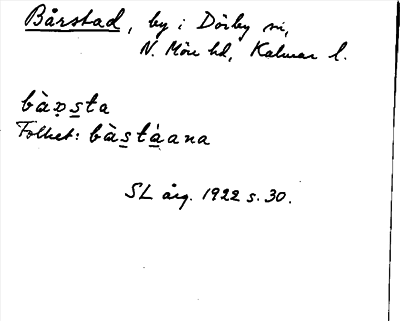 Bårstad, by i Dörby sn,
N. Möre hd, Kalmar l.
bàọs̲ta
Folket: bàs̲tá̲ana
SL årg. 1922 s. 30.